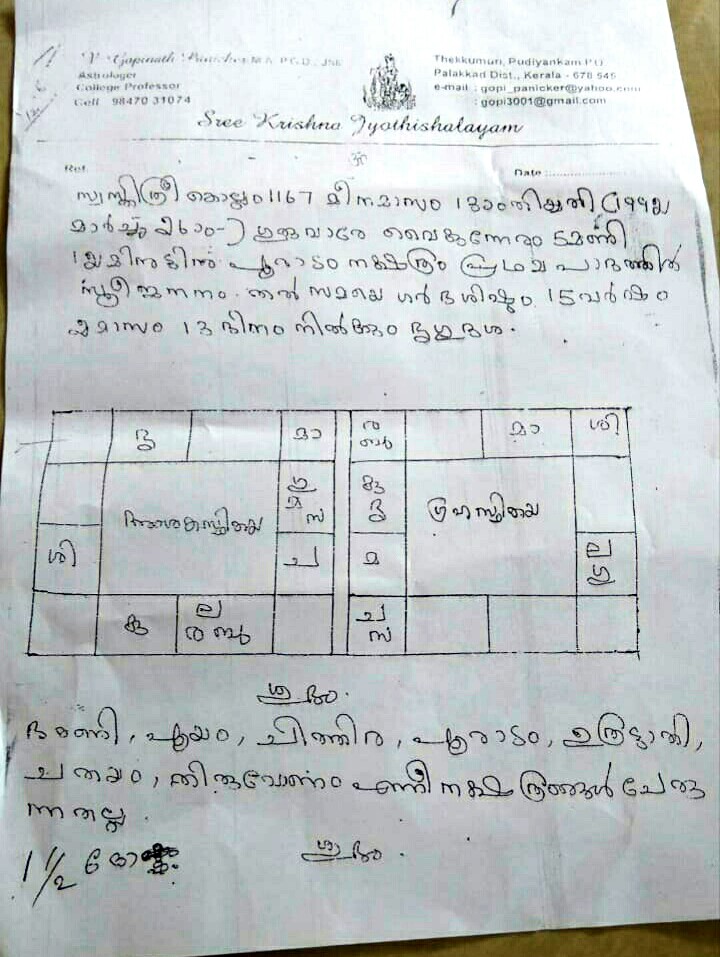 V. Gopinath Panicker M.A. P.G.D., JSK
Astrologer
College Professor
Cell 98470 31074
Thekkumuri, Pudiyankam P.O
Palakkad Dist., Kerala - 678 545
e-mail : gopi_panicker@yahoo.com
: gopi3001@gmail.com
Sree Krishna Jyothishalayam
ഓം
Ref
Date :
സ്വസ്തിശ്രീ കൊല്ലം 1167 മീനമാസം 13ാം തിയ്യതി (1992
മാർച്ചു 26ാം-) ഗുരുവാരേ വൈകുന്നേരം 5മണി
12മിനുട്ടിന് പൂരാടം നക്ഷത്രം പ്രഥമ പാദത്തിൽ
സ്ത്രീജനനം. തൽ സമയെ ഗർഭശിഷ്ടം 15വർഷം
മാസം 13 ദിനം നിൽക്കും ശുക്രദശ.
ശു മാ ര ബു മാ ശി
ഗു മ സ കു ശു
അംശകസ്ഥിതയെ ഗ്രഹസ്ഥിതയെ
ശി ച മ ല ഗു
കു ല ര ബു ച സ
ശുഭം.
ഭരണി, പൂയം, ചിത്തിര, പൂരാടം, ഉത്രട്ടാതി,
ചതയം, തിരുവോണം എന്നീ നക്ഷത്രങ്ങൾ ചേരു
ന്നതല്ല.
1 1/2
ശുഭം.